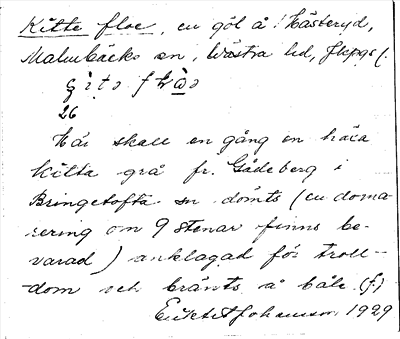 Kitte floe, en göl å Hästeryd,
Malmbäcks sn, Västra hd, Jkpgs l.
26
Här skall en gång en häxa
Kitta grå fr. Gådeberg i
Bringetofta sn dömts (en doma-
rering om 9 stenar finns be-
varad) anklagad för troll-
dom och bränts å bål. (f.)
Johansson 1929